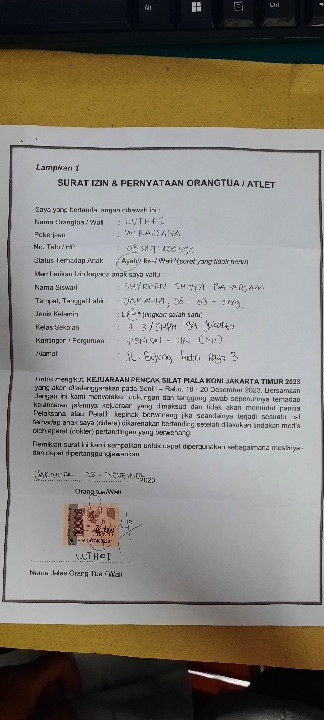 Lampiran 1
SURAT IZIN & PERNYATAAN ORANGTUA / ATLET
Saya yang bertanda tangan dibawah ini :
Nama Orangtua / Wali : LUTHFI
Pekerjaan : WIRASWASTA
No. Telp / HP :
Status Terhadap Anak : Ayah / Ibu / Wali* (coret yang tidak perlu)
Memberikan Izin kepada anak saya yaitu :
Nama Siswa/i :
Tempat, Tanggal Lahir : JAKARTA,
Jenis Kelamin : L / P* (lingkari salah satu)
Kelas Sekolah :
Kontingen / Perguruan :
Alamat : JL.
Untuk mengikuti KEJUARAAN PENCAK SILAT PIALA KONI JAKARTA TIMUR 2023
yang akan diselenggarakan pada Senin – Rabu, 18 - 20 Desember 2023. Bersamaan
dengan ini kami menyatakan dukungan dan tanggung jawab sepenuhnya terhadap
kelancaran jalannya kejuaraan yang dimaksud dan tidak akan menuntut panitia
Pelaksana atau Pelatih kepihak berwenang jika seandainya terjadi sesuatu hal
terhadap anak saya (cidera) dikarenakan bertanding setelah dilakukan tindakan medis
oleh aparat (dokter) pertandingan yang berwenang.
Demikian surat ini kami sampaikan untuk dapat dipergunakan sebagaimana mestinya
dan dapat dipertanggungjawabkan.
Orangtua/Wali
10000
LUTHFI
Nama Jelas Orang Tua / Wali